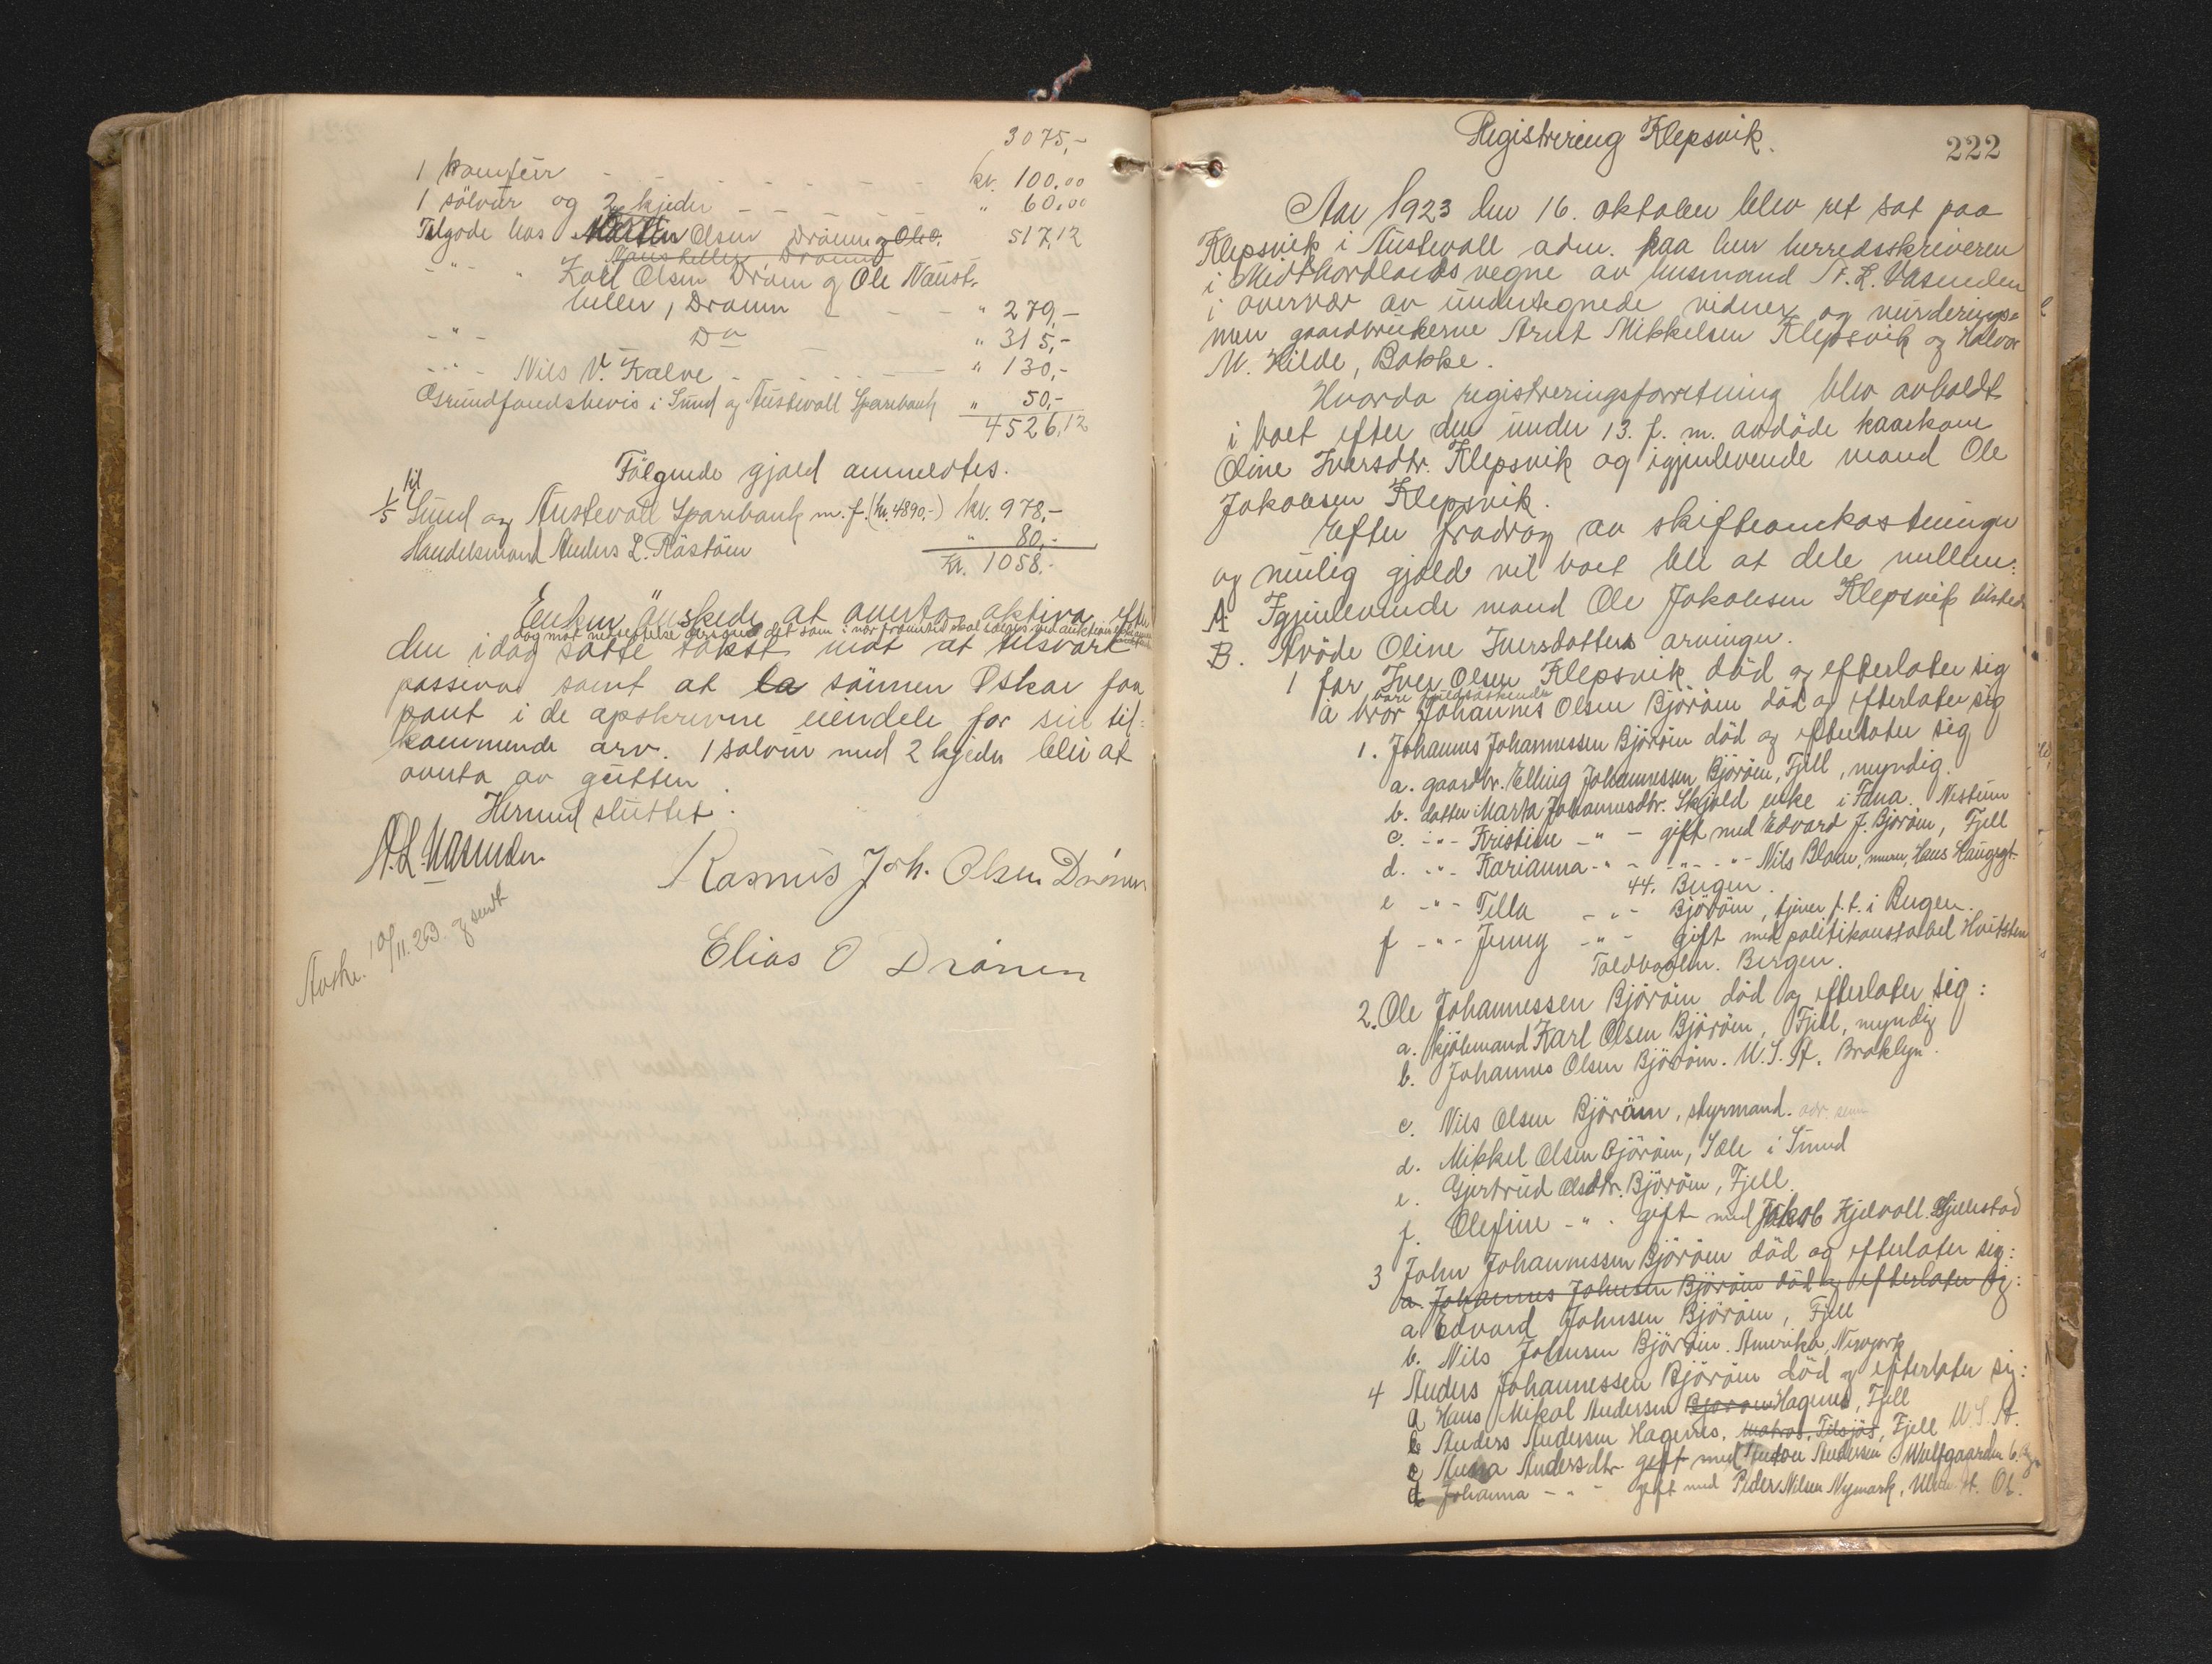 3075,-
1 komfeir - - - - - - kr. 100.00
1 sölvur og 2 kjeder - - - " 60.00
Tilgode hos Martin Olsen Drönen og Ole O. 517,12
Nausthellen Drönen
- " - " Karl Olsen Drönen og Ole Naust-
hellen, Drönen - - - " 279,-
- " - Do " 315,-
- " - Nils V. Kalve - - - " 130,-
Grundfondsbevis i Sund og Austevoll Sparebank " 50,-
4526,12
Følgende gjæld anmeldtes.
1/5 til Sund og Austevoll Sparebank m. f. (kr. 4890,-) kr. 978,-
Handelsmand Anders L. Råstöen " 80,-
Kr. 1058,-
Enken önskede at overta aktiva efter
dog mot undtagelse det som i nær fremtid skal sælges ved auktion
den idag satte takst mot at tilsvare
passiva samt at la sönnen Oskar faa
pant i de opskrevne eiendele for sin til-
kommende arv. 1 sölvur med 2 kjeder blir at
overta av gutten.
Hermed sluttet.
A. L. Vasenden
Rasmus Joh. Olsen Drönen
Elias O Drönen
Avskr. 10/11.23. og sendt
Registrering Klepsvik.
222
Aar 1923 den 16. oktober blev ret sat paa
Klepsvik i Austevoll adm. paa herr herredsskriveren
i Midthordlands vegne av lensmand A. L. Vasenden
i overvær av undertegnede vidner og vurderings-
men gaardbrukerne Arnt Mikkelsen Klepsvik og Halvor
M. Hilde, Bakke.
Hvorda registreringsforretning blev avholdt
i boet efter den under 13. f. m. avdöde kaarkone
Oline Iversdtr. Klepsvik og igjenlevende mand Ole
Jakobsen Klepsvik.
Efter fradrag av skifteomkostninger
og mulig gjæld vil boet bli at dele mellem:
A Igjenlevende mand Ole Jakobsen Klepsvik tilstede
B. Avdöde Oline Iversdatters arvinger.
1 far Iver Olsen Klepsvik död og efterlater sig
a bror Johannes Olsen Björöen död og efterlater sig
1. Johannes Johannessen Björöen död og efterlater sig
a. gaardbr. Elling Johannessen Björöen, Fjell, myndig.
b. datter Marta Johannesdtr. Skjold enke i Fana. Nestun
c. - " - Kristine - " - gift med Edvard J. Björöen, Fjell
d. - " - Karianna - " - - " - - " - Nils Blom, murer, Hans Haugegt.
44. Bergen.
e - " - Tilla - " - Björöen, tjener p. t. i Bergen.
f - " - Jenny - " - gift med politikonstabel Hvitsten
Toldbogden. Bergen.
2. Ole Johannessen Björöen död og efterlater sig:
a. kjölemand Karl Olsen Björöen, Fjell, myndig
b. Johannes Olsen Björöen. U. S. A. Broklyn.
c. Nils Olsen Björöen, styrmand. adr.
d. Mikkel Olsen Björöen, Tæle i Sund
e. Gjertrud Olsdtr. Björöen, Fjell.
f. Olefine - " - gift med Jakob Hjelvoll. Hjellestad
3 John Johannessen Björöen död og efterlater sig:
a. Johannes Johnsen Björöen död og efterlater sig:
a Edvard Johnsen Björöen, Fjell
b. Nils Johnsen Björöen. Amerika, Newyork
4 Anders Johannessen Björöen död og efterlater sig:
a Hans Mikal Andersen Björöen Hagenes, Fjell
b Anders Andersen Hagenes, matros, Tilsjös, Fjell U. S. A.
c Anna Andersdtr. gift med Anton Andersen Wulfgaarden 6.
d Johanna - " - gift med Peder Nilsen Nymark,